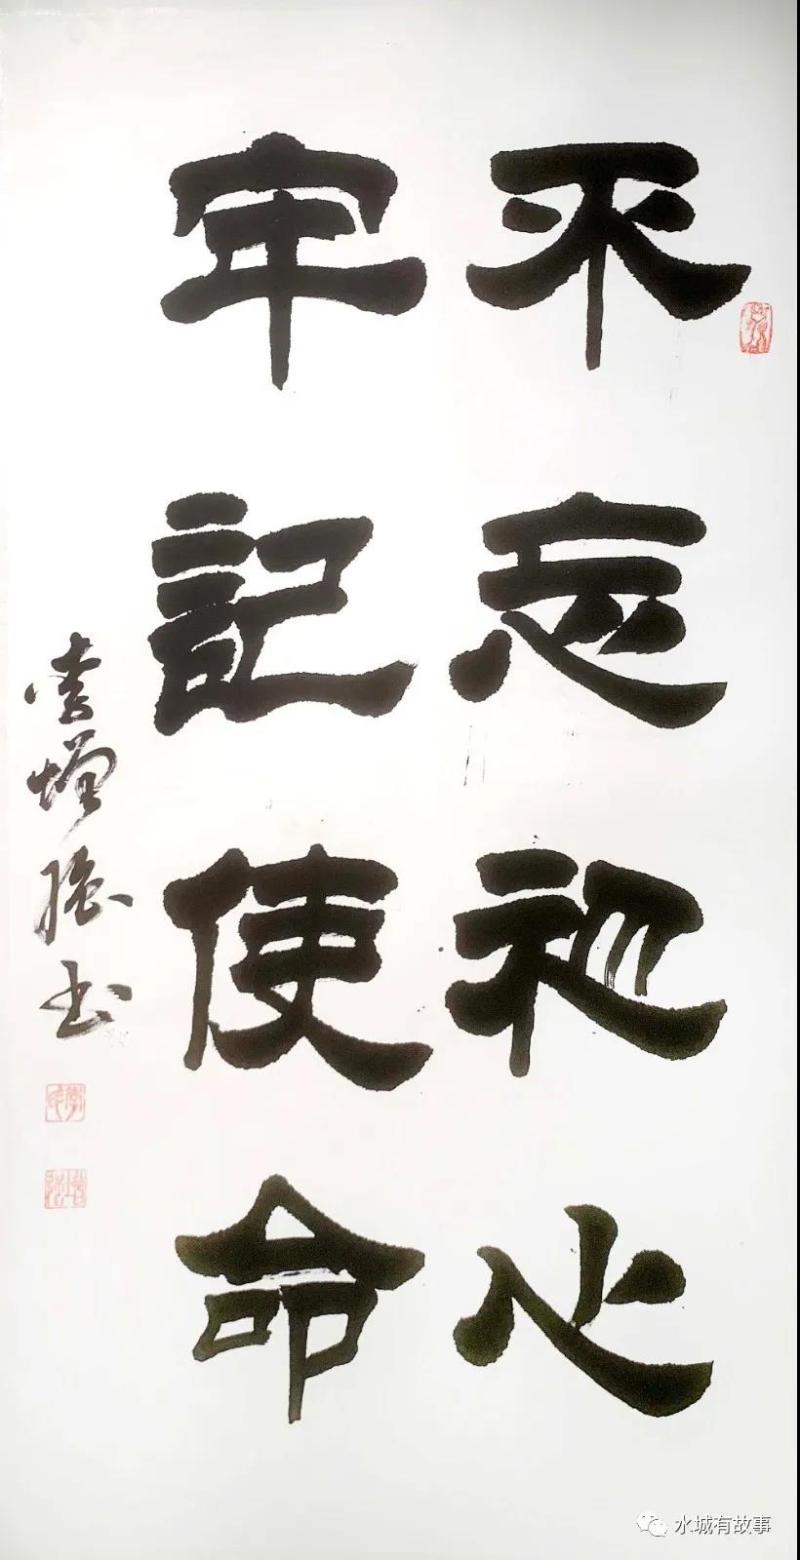 不忘初心
牢記使命
李增书
水城有故事